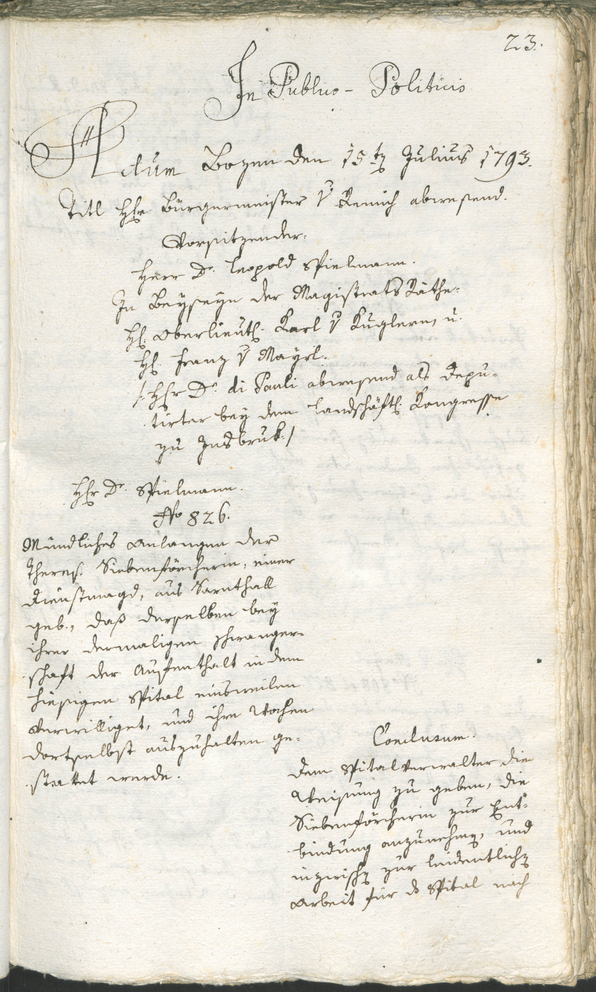 23.
In Publico-Politicis
Actum Bozen den 15ten Julius 1793.
Titl Herr Bürgermeister v Remich abwesend.
Vorsitzender.
Herr Dr. Leopold Spielmann.
In Beyseyn der Magistrats Räthe.
H. Oberlieut. Karl v Kuglern, u.
H. Franz v Mayrl.
/: Herr Dr. di Pauli abwesend als Depu-
tirter bey dem landschäftl. Kongresse
zu Insbruk. /
Herr Dr. Spielmann.
No 826.
Mündliches Anlangen der
Theres. Siebenförcherin, einer
Dienstmagd, aus Sarnthall
geb., daß derselben bey
ihrer dermaligen Schwanger-
schaft der Aufenthalt in dem
hiesigen Spital einsweilen
verwilliget, und ihre Wochen
dortselbst auszuhalten ge-
stattet werde.
Conclusum.
Dem Spitalverwalter die
Weisung zu geben, die
Siebenförcherin zur Ent-
bindung anzunehmen, und
inzwischen zur leidentlichen
Arbeit für das Spital nach